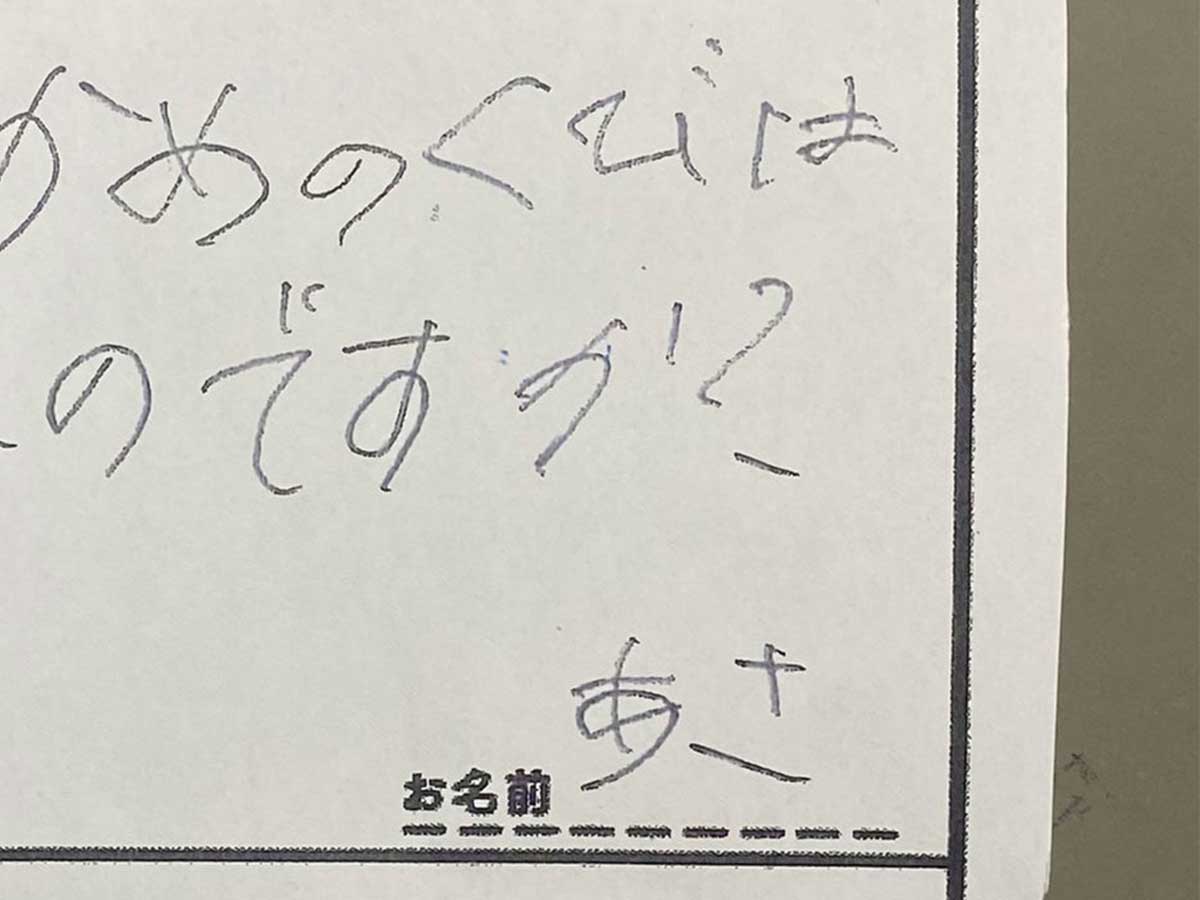 かめのくびは
のですか?
あさ
お名前